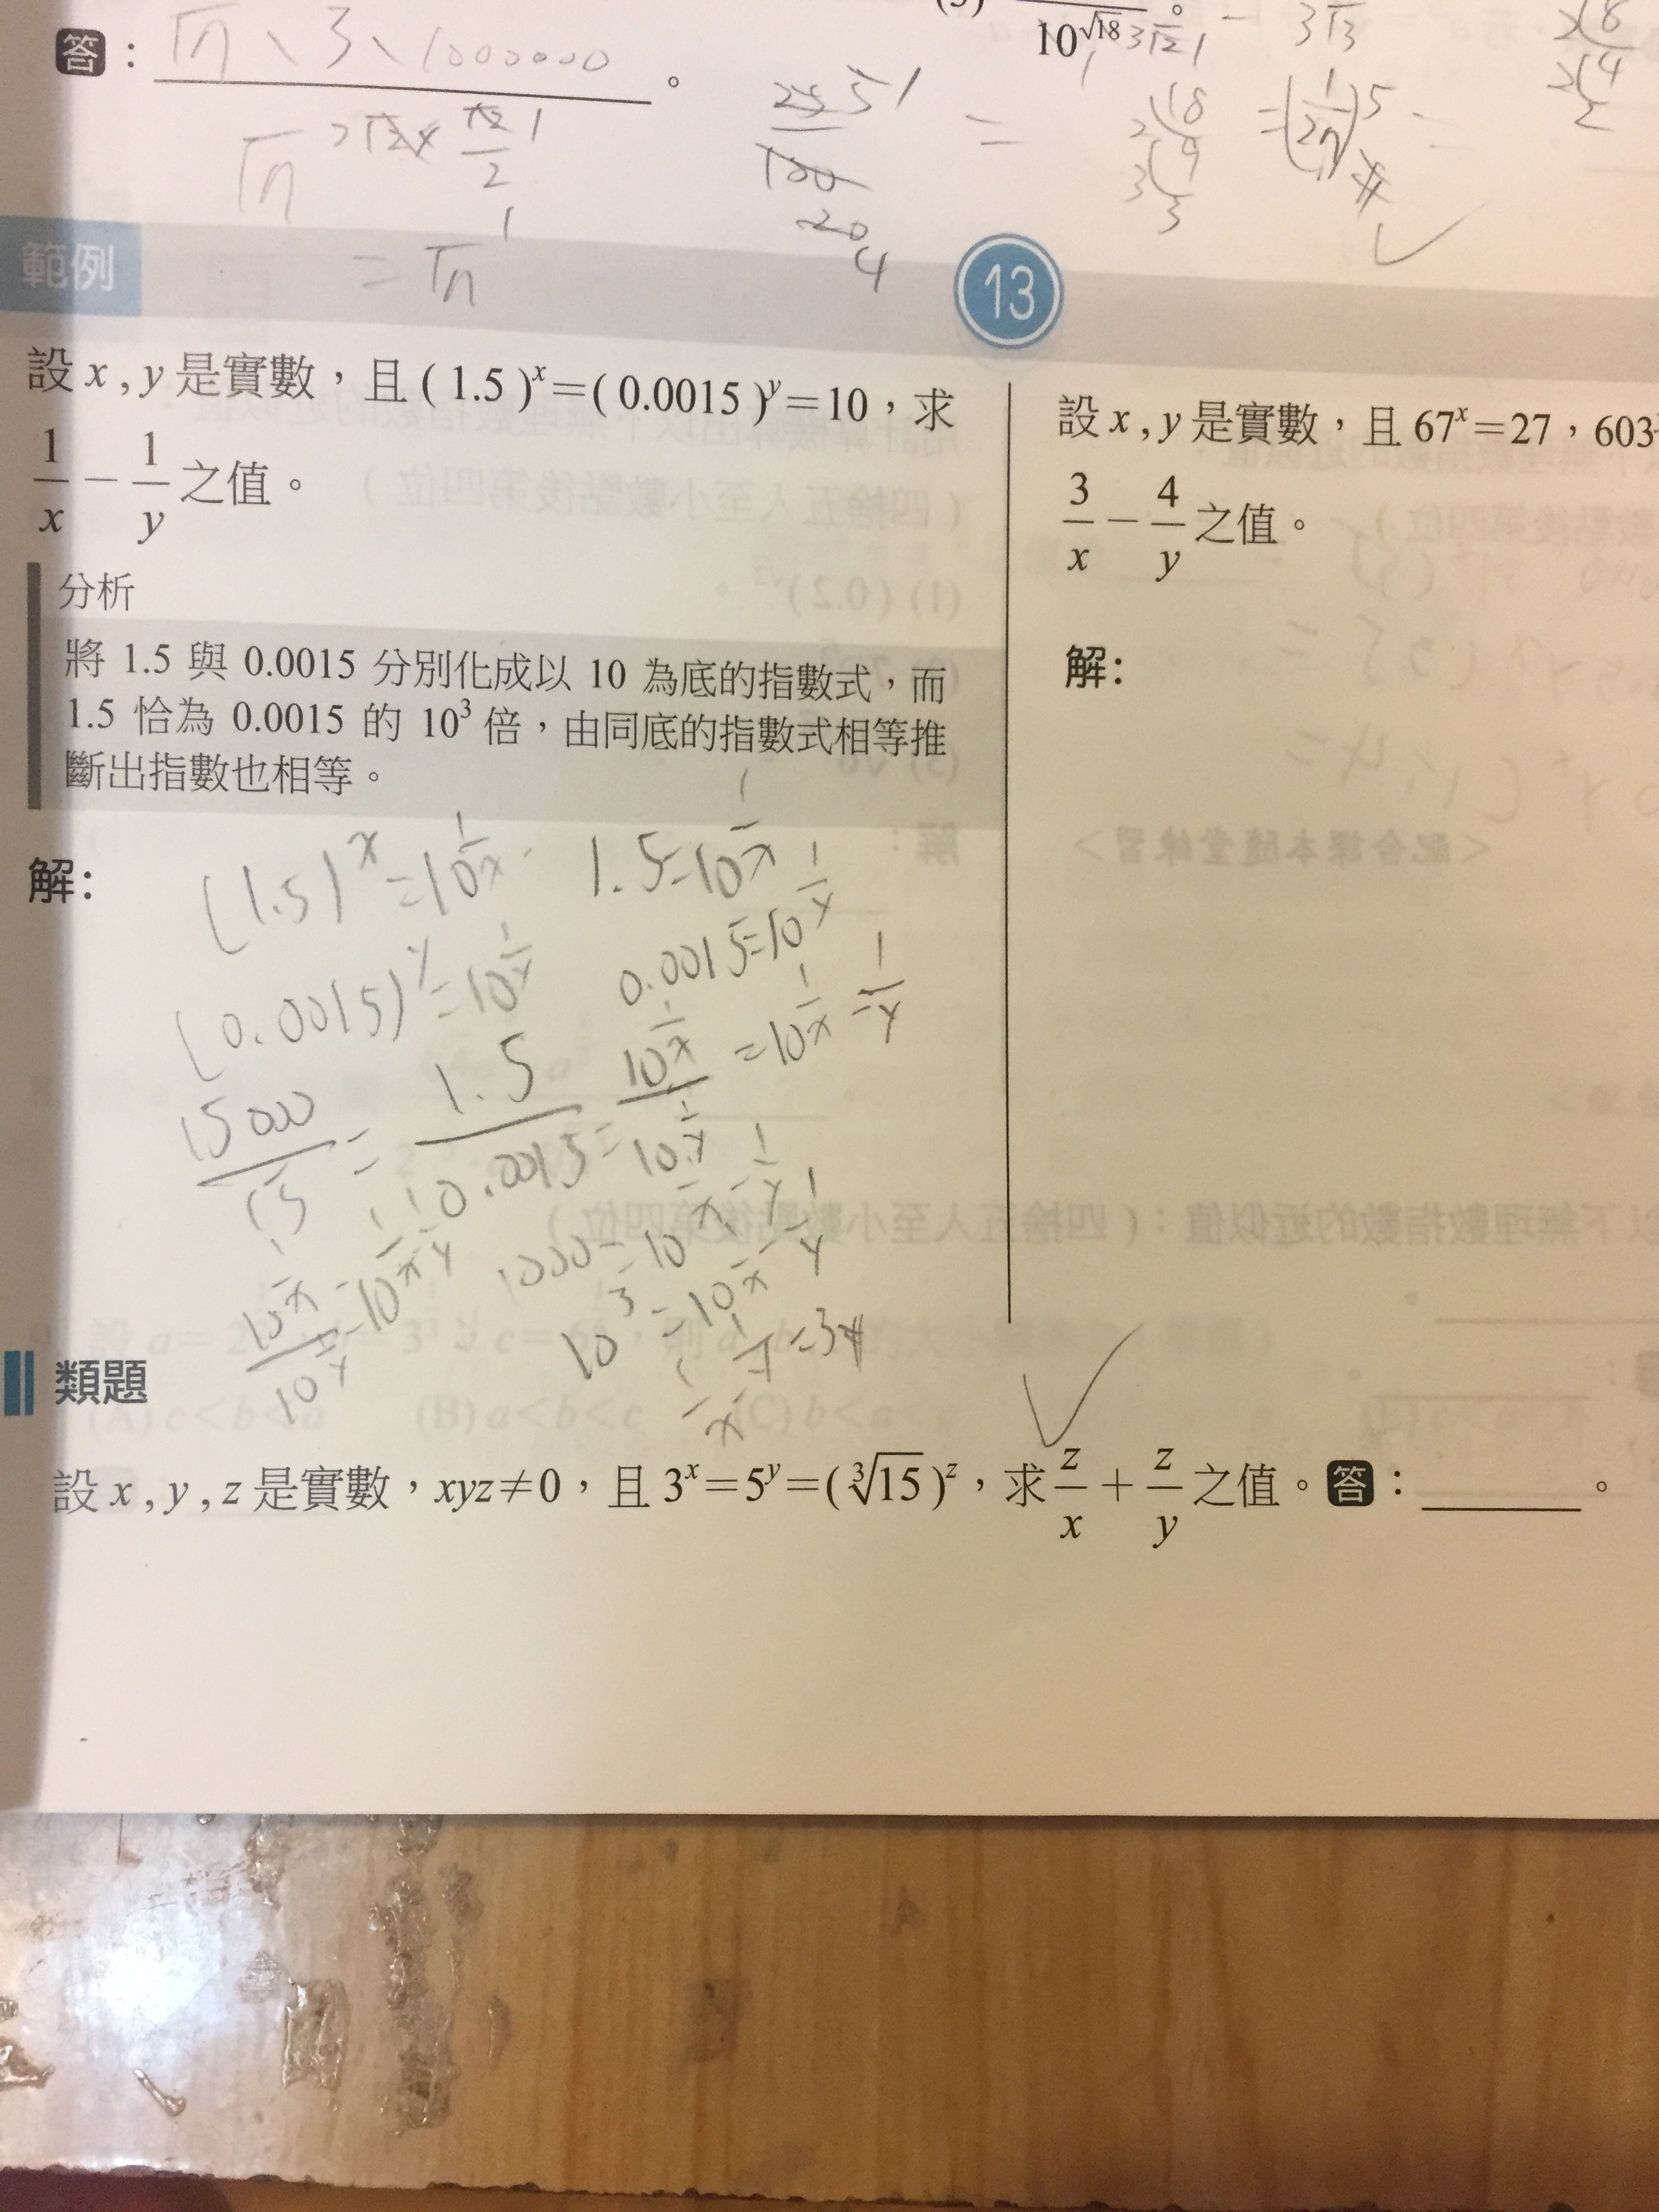 答：√π、3、1000000。
10^√18
範例 13
設 x , y 是實數，且 ( 1.5 )^x = ( 0.0015 )^y = 10，求
1/x − 1/y 之值。
分析
將 1.5 與 0.0015 分別化成以 10 為底的指數式，而
1.5 恰為 0.0015 的 10³ 倍，由同底的指數式相等推
斷出指數也相等。
解：
(1.5)^x = 10^(1/x)
1.5 = 10^(1/x)
(0.0015)^y = 10^(1/y)
0.0015 = 10^(1/y)
15000/15 = 1.5/0.0015 = 10^(1/x)/10^(1/y) = 10^(1/x − 1/y)
10^(1/x)/10^(1/y) = 10^(1/x − 1/y)
1000 = 10^(1/x − 1/y)
10³ = 10^(1/x − 1/y)
1/x − 1/y = 3
設 x , y 是實數，且 67^x = 27，603
3/x − 4/y 之值。
解：
類題
設 x , y , z 是實數，xyz ≠ 0，且 3^x = 5^y = (∛15)^z，求 z/x + z/y 之值。答：______。